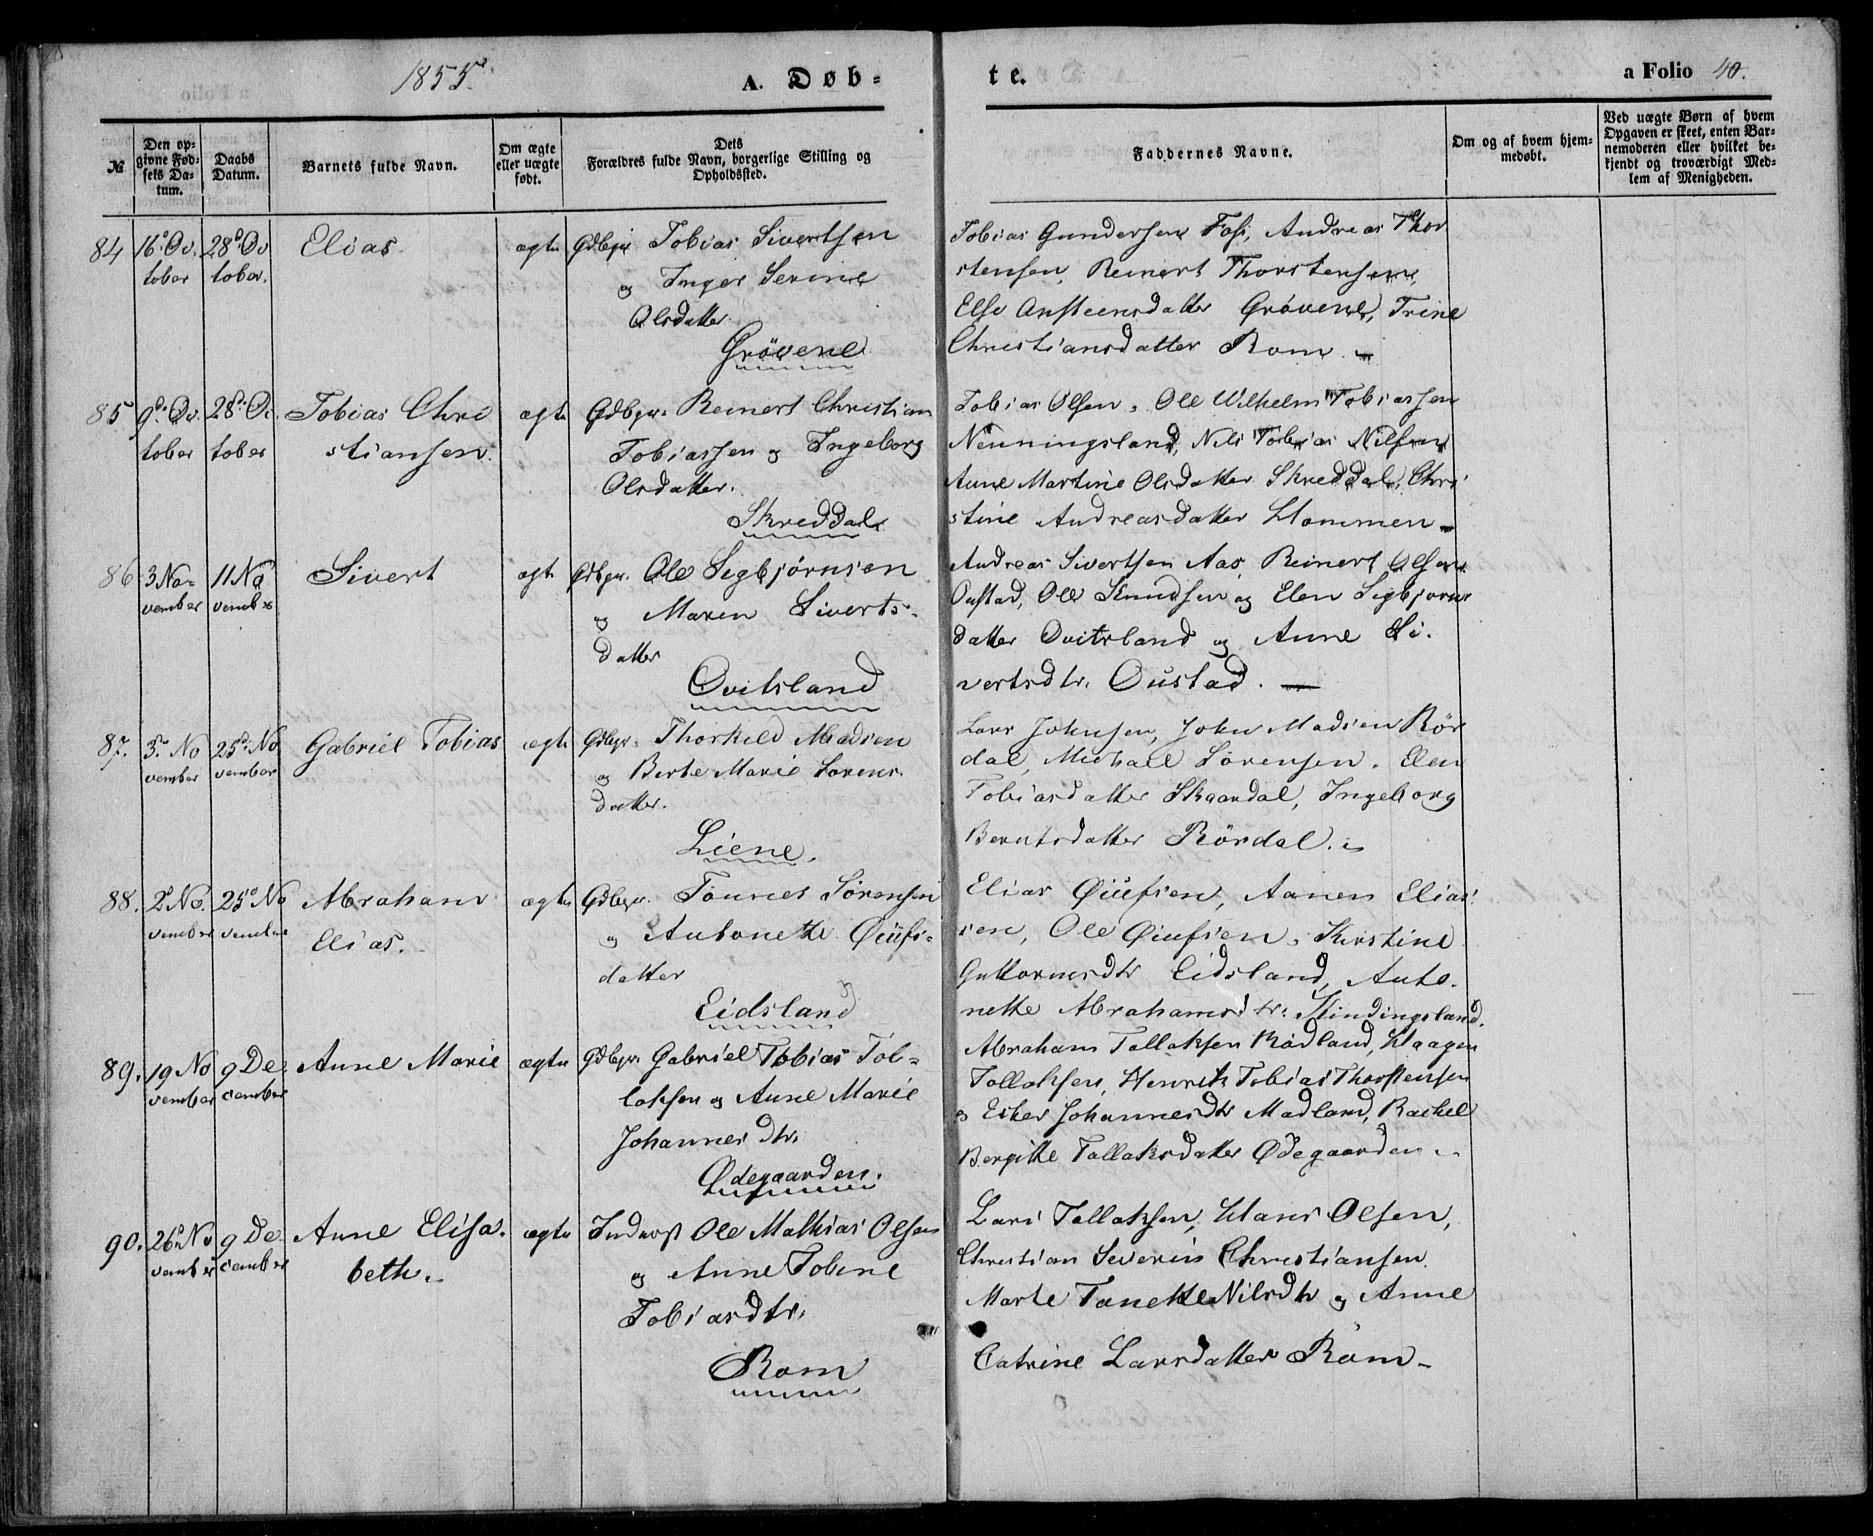 1855.
A. Døb-
te.
a Folio 40.
№
Den op-
givne Fød-
sels Da-
tum.
Daabs
Datum.
Barnets fulde Navn.
Om ægte
eller uægte
født.
Dets
Forældres fulde Navn, borgerlige Stilling og
Opholdssted.
Faddernes Navne.
Om og af hvem hjem-
medøbt.
Ved uægte Børn af hvem
Opgaven er skeet, enten Bar-
nemoderen eller hvilket be-
kjendt og troværdigt Med-
lem af Menigheden.
84
16d. Oc
tober
28d. Oc
tober.
Elias.
ægte
Gdbgr Tobias Sivertsen
og Inger Serine
Olsdatter
Grövene
Tobias Gundersen Fosi, Andreas Thor
stensen, Reinert Thorstensen,
Else Ansteensdatter Grövene, Trine
Christiansdatter Rom
85
9d. Oc
tober
28d. Oc
tober
Tobias Chri
stiansen.
ægte
Gdbgr. Reinert Christian
Tobiassen og Ingeborg
Olsdatter.
Skreddal
Tobias Olsen, Ole Wilhelm Tobiassen
Nenningsland, Nils Tobias Nilsen
Anne Martine Olsdatter Skreddal, Chri
stine Andreasdatter Hommen
86
3 No-
vember
11 No
vember
Sivert
ægte
Gdbgr. Ole Segbjørnsen
og Maren Siverts-
datter
Qvitsland
Andreas Sivertsen Aas, Reinert Olsen
Oustad, Ole Knudsen og Elen Segbjørns
datter Qvitsland og Anne Si-
vertsdtr. Oustad.
87.
3d. No
vember
25d. No
vember
Gabriel Tobias
ægte
Gdbgr. Thorkild Madsen
og Berte Marie Sorens
datter.
Liene.
Lars Johnsen, John Madsen Rör
dal, Michael Sörensen. Elen
Tobiasdatter Skaardal, Ingeborg
Berntsdatter Rördal.
88.
2d No.
vember
25d No
vember
Abraham
Elias.
ægte
Gdbgr. Tönnes Sörensen
og Antonette Öiufs-
datter
Eidsland
Elias Öiufsen, Aanen Elias
sen, Ole Öiufsen, Kirstine
Guttormsdtr Eidsland, Anto-
nette Abrahamsdtr. Stindingsland.
89.
19 No
vember
9 De
cember
Anne Marie
ægte
Gdbgr. Gabriel Tobias Tol-
laksen og Anne Marie
Johannesdtr.
Ødegaarden.
Abraham Tollaksen Rödland, Haagen
Tollaksen, Henrik Tobias Thorstensen
og Ester Johannesdtr Madland, Rachel
Bergitte Tollaksdatter Ødegaarden
90.
26d No
vember
9 De
cember
Anne Elisa-
beth.
ægte
Inderst Ole Mathias Olsen
og Anne Tobine
Tobiasdtr.
Rom
Lars Tollaksen, Hans Olsen,
Christian Severin Christiansen.
Marte Tonette Nilsdtr og Anne
Catrine Larsdatter Rom